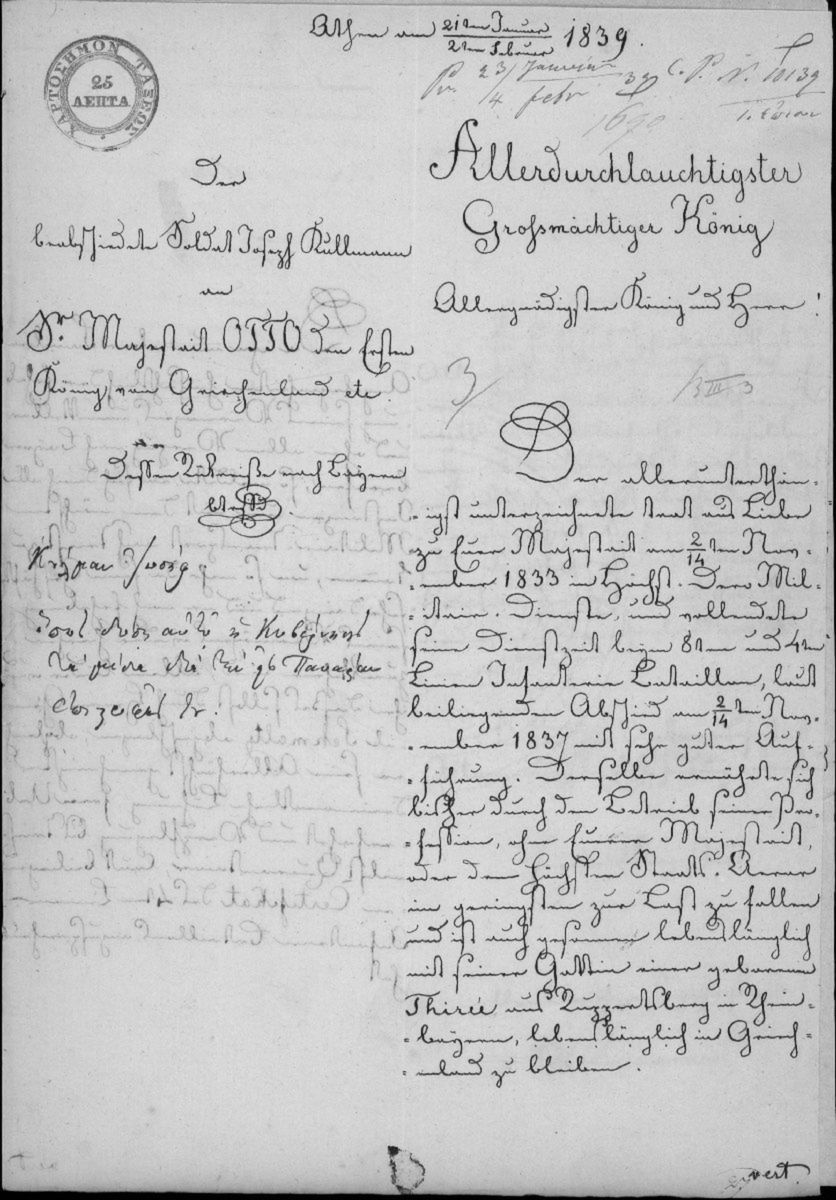 ΧΑΡΤΟΣΗΜΟΝ ΤΑΞΕΩΣ
25
ΛΕΠΤΑ
Athen am 21ten Januar / 2ten Februar 1839.
23/4 Januar / febr 39 C. P. N. 10139
1690
Der
verabschiedete Soldat Joseph Kullmann
an
Sr. Majestait OTTO den Ersten
König von Griechenland etc.
Dessen Rükreise nach Bayern
betrffd.
3
Allerdurchlauchtigster
Grossmächtiger König
Allergnädigster König und Herr!
3 III 3
Der allerunterthän-
-igst unterzeichnete tratt aus Liebe
zu Euer Majestait am 2/14ten Nov-
-ember 1833 in Höchst-Dero Mil-
-itair-Dienste, und vollendete
seine Dienstzeit beym 8ten und 4ten
Linien Infanterie Bataillon, laut
beiliegenden Abschied am 2/14ten Nov-
-ember 1837 mit sehr guter Auf-
-führung. Derselbe ernährte sich
bisher durch den Betrieb seiner Pro-
-fession, ohne Eurer Majestait,
oder dem höchsten Staats-Aerar
im geringsten zur Last zu fallen
und ist auch gesonnen lebenslänglich
mit seiner Gattin einer geborenen
Thirée aus Ruppertsberg in Rhein-
-bayern, lebenslänglich in Griech-
-enland zu bleiben.
vert.